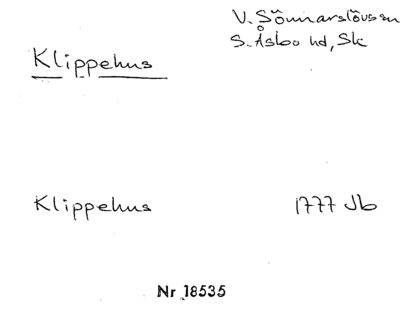 V. Sönnarslövs sn
S. Åsbo hd, Sk
Klippehus
Klippehus 1777 Jb
Nr 18535